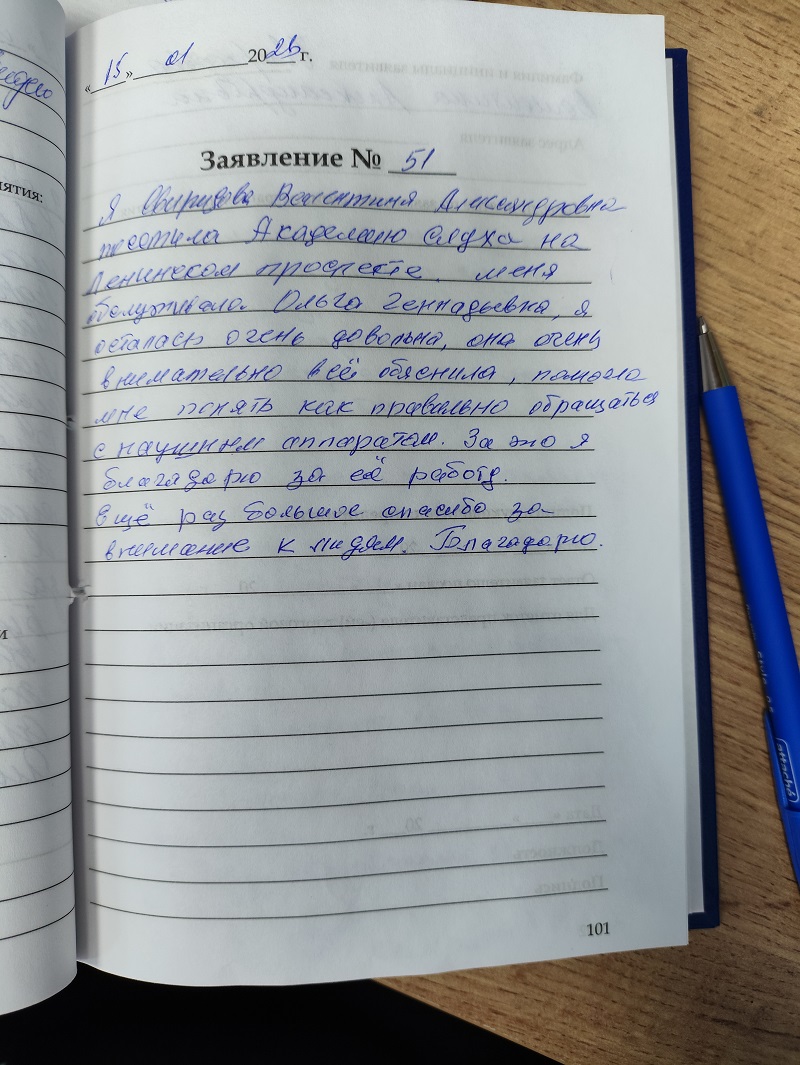 «15» 01 2026 г.
Заявление № 51
Я Свиридова Валентина Александровна
посетила Академию слуха на
Ленинском проспекте. меня
обслуживала Ольга Геннадьевна, я
осталась очень довольна, она очень
внимательно всё обяснила, помогла
мне понять как правильно обращаться
с наушным аппаратам. За это я
благадорю за её работу.
Ещё раз большое спасибо за
внимание к людям. Благадорю.
101
ятия:
и
attaché